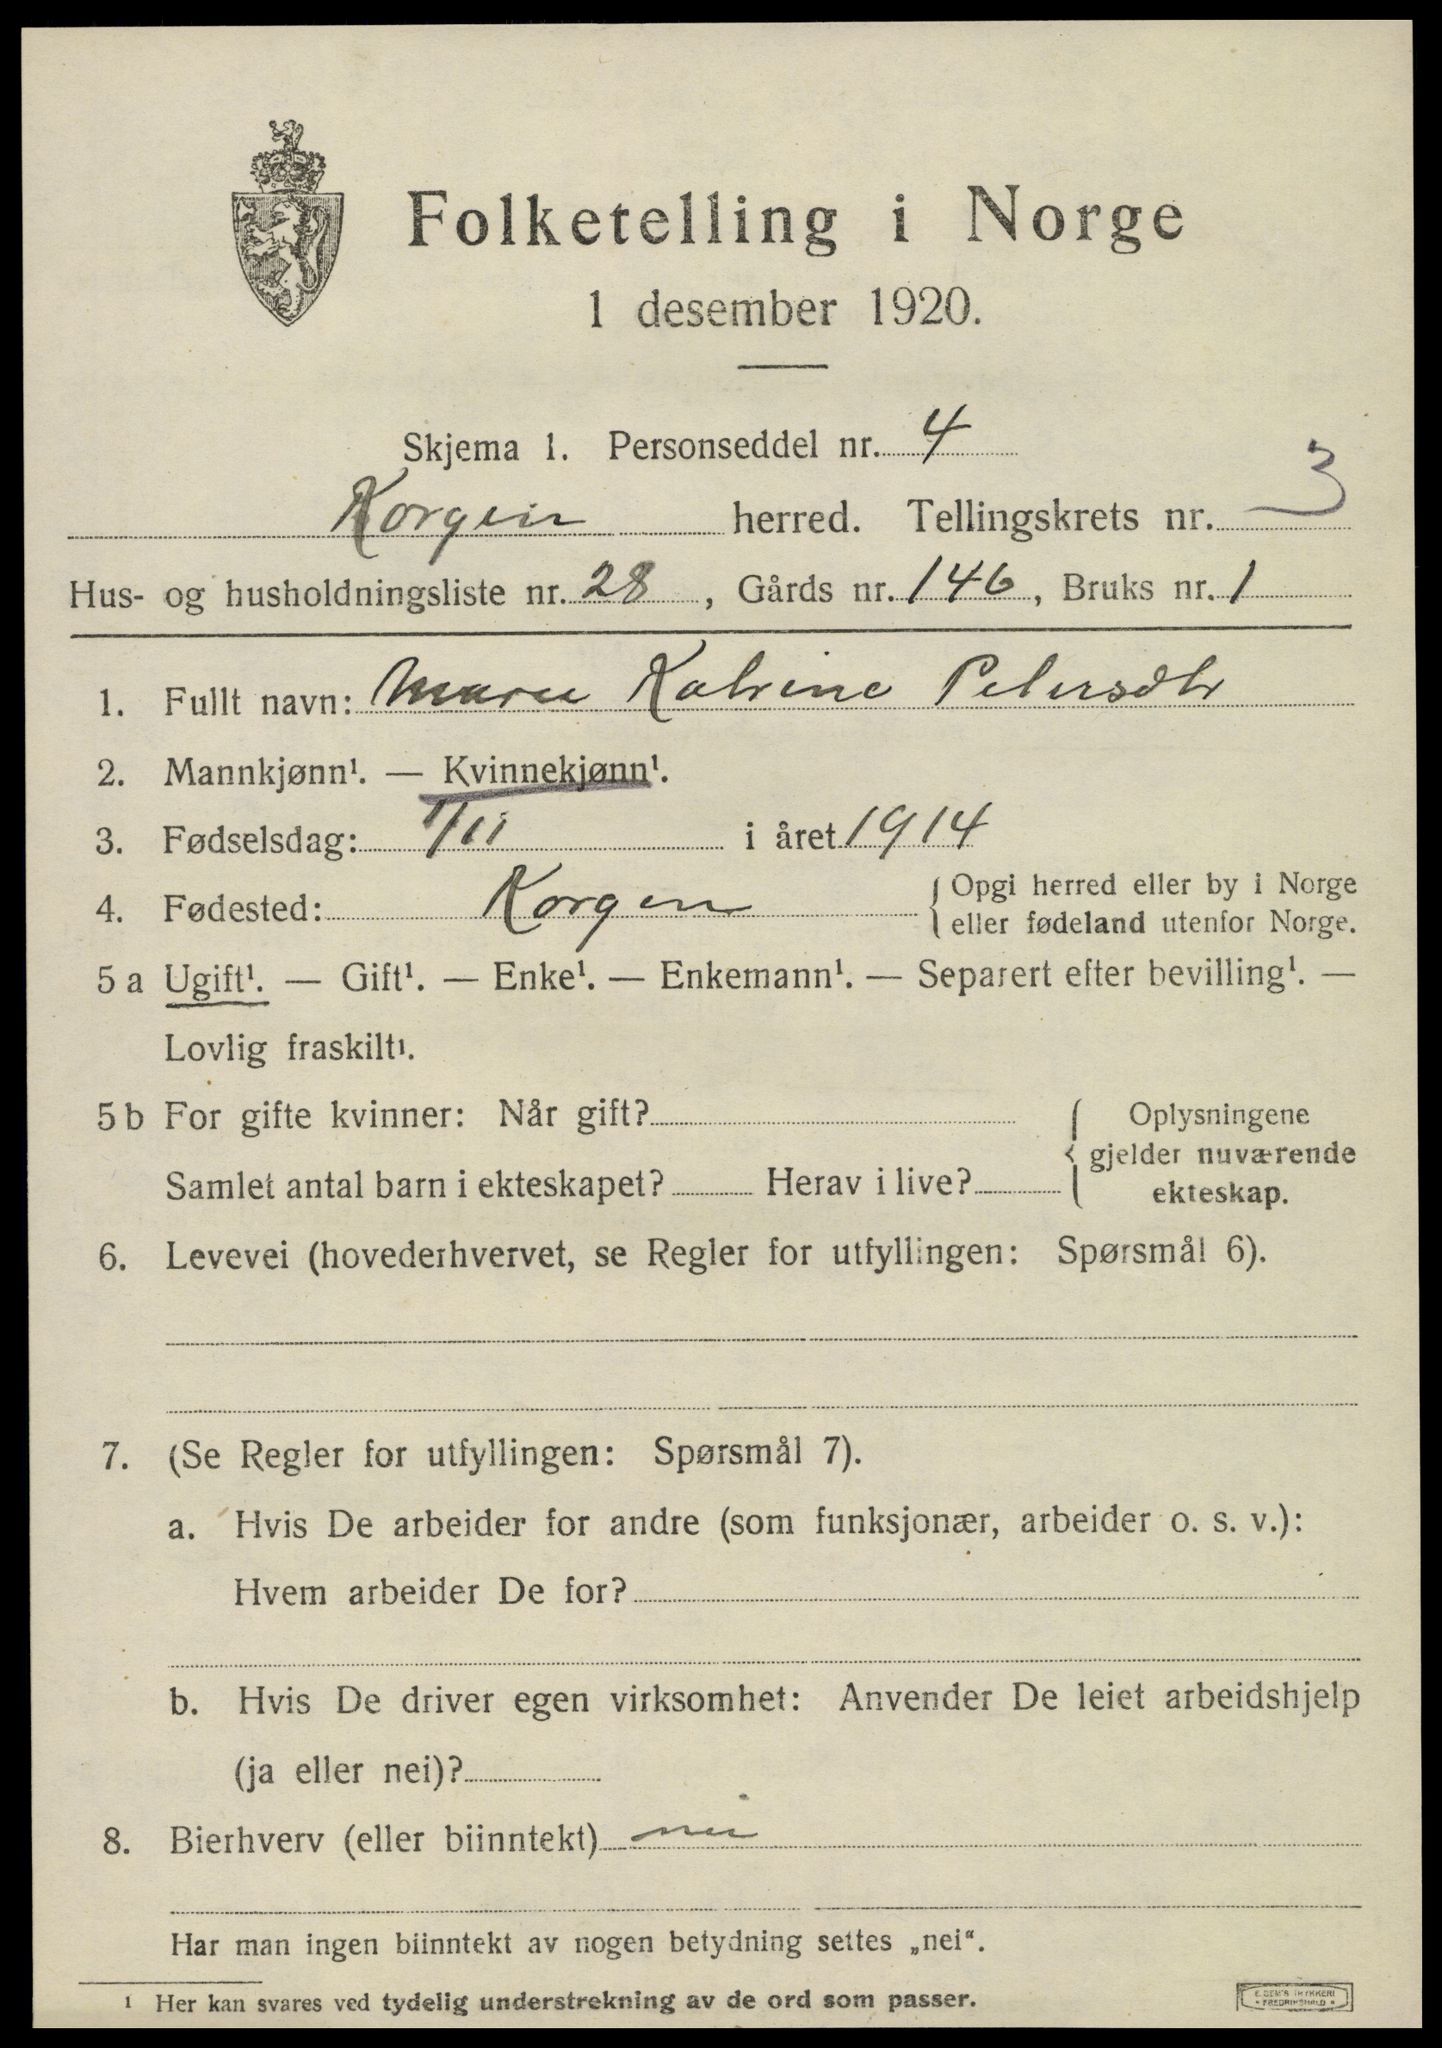 Folketelling i Norge
1 desember 1920.
Skjema 1. Personseddel nr. 4
Korgen herred. Tellingskrets nr. 3
Hus- og husholdningsliste nr. 28, Gårds nr. 146, Bruks nr. 1
1. Fullt navn: Katrine Petersdtr
2. Mannkjønn¹. — Kvinnekjønn¹.
3. Fødselsdag: 1/11 i året 1914
4. Fødested: Korgen { Opgi herred eller by i Norge
eller fødeland utenfor Norge.
5 a Ugift¹. — Gift¹. — Enke¹. — Enkemann¹. — Separert efter bevilling¹. —
Lovlig fraskilt¹.
5 b For gifte kvinner: Når gift?
Samlet antal barn i ekteskapet? Herav i live?
{ Oplysningene
gjelder nuværende
ekteskap.
6. Levevei (hovederhvervet, se Regler for utfyllingen: Spørsmål 6).
7. (Se Regler for utfyllingen: Spørsmål 7).
a. Hvis De arbeider for andre (som funksjonær, arbeider o. s. v.):
Hvem arbeider De for?
b. Hvis De driver egen virksomhet: Anvender De leiet arbeidshjelp
(ja eller nei)?
8. Bierhverv (eller biinntekt) nei
Har man ingen biinntekt av nogen betydning settes „nei“.
¹ Her kan svares ved tydelig understrekning av de ord som passer.